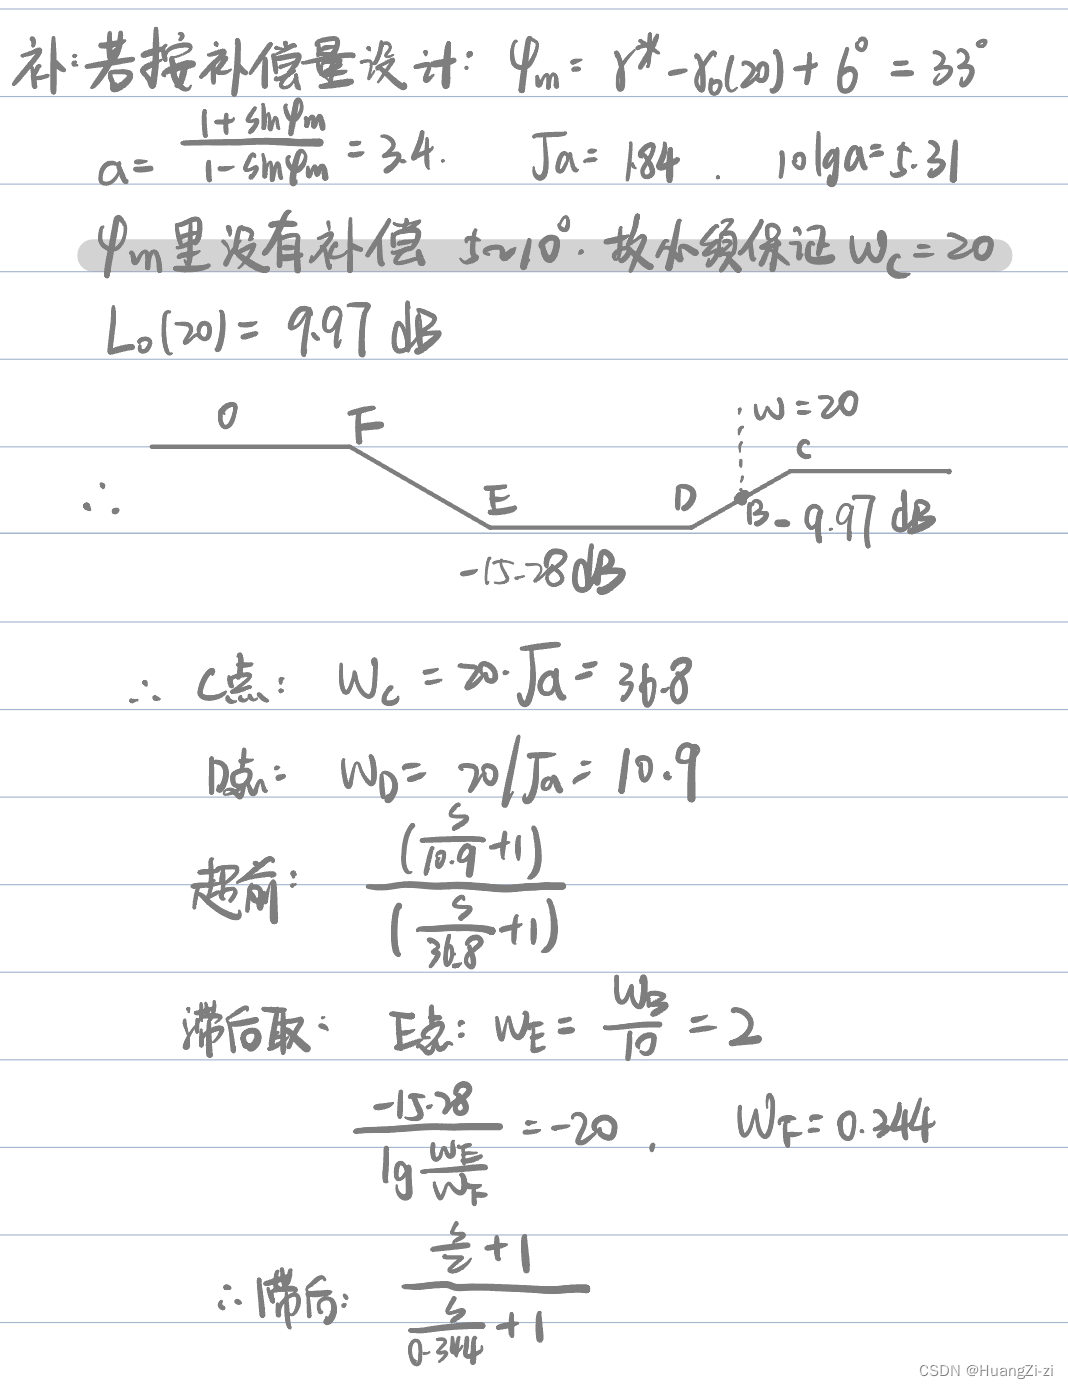 补:若按补偿量设计: φm = γ* - γ0(20) + 6° = 33°
a = (1+sinφm)/(1-sinφm) = 3.4. √a = 1.84 . 10lga = 5.31
φm里没有补偿 5~10°. 故必须保证 Wc = 20
L0(20) = 9.97 dB
W = 20
0 F C
∴ E D B -9.97 dB
-15.28 dB
∴ C点: Wc = 20·√a = 36.8
D点: WD = 20/√a = 10.9
超前: (s/10.9 + 1)/(s/36.8 + 1)
滞后取: E点: WE = WB/10 = 2
-15.28/lg(WE/WF) = -20 . WF = 0.344
∴ 滞后: (s/2 + 1)/(s/0.344 + 1)
CSDN @HuangZi-zi